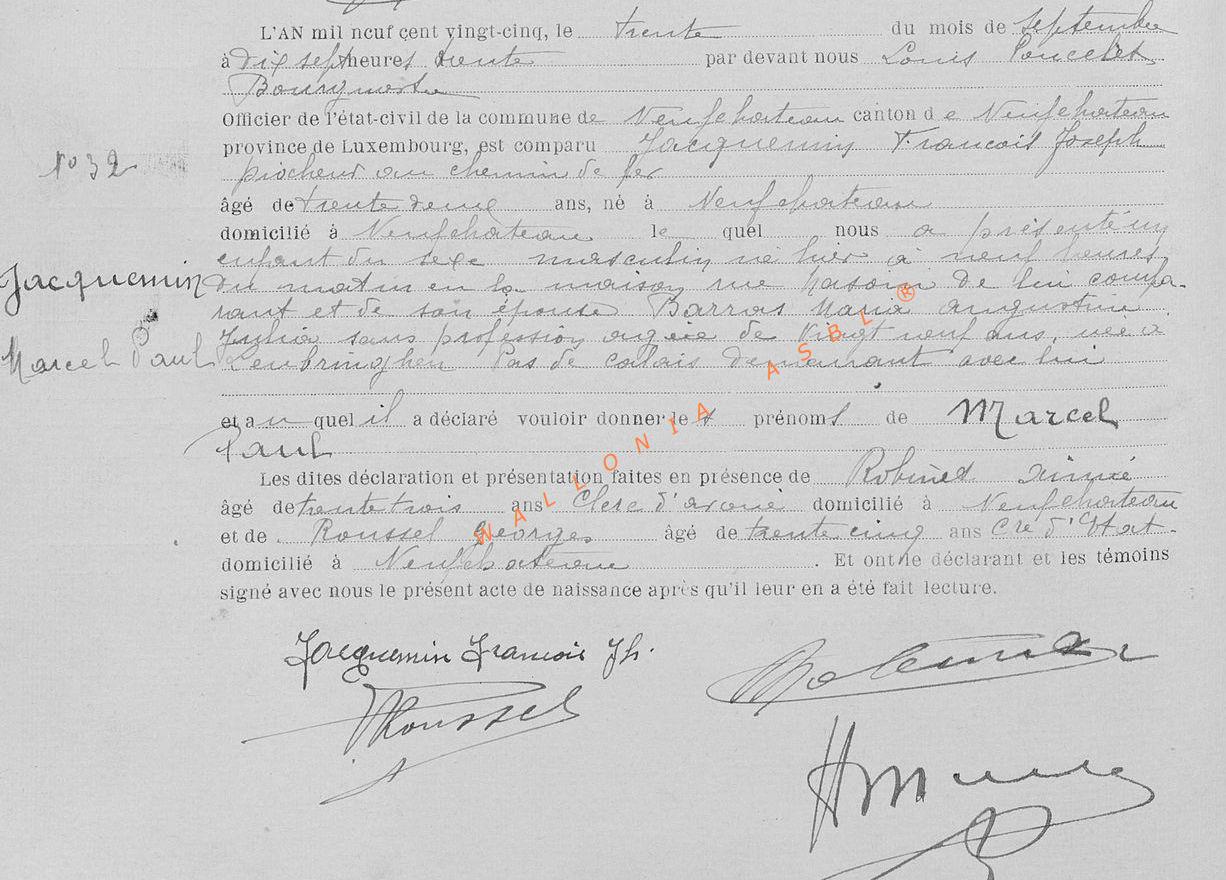 L'AN mil neuf cent vingt-cinq, le trente du mois de septembre
à dix sept heures trente par devant nous Louis Poncelet
Bourgmestre
Officier de l'état-civil de la commune de Neufchateau canton de Neufchateau
N° 32
province de Luxembourg, est comparu Jacquemin Francois Joseph
piocheur au chemin de fer
âgé de trente deux ans, né à Neufchateau
domicilié à Neufchateau le quel nous a présenté un
enfant du sexe masculin né hier à neuf heures
Jacquemin
du matin en la maison rue de lui compa-
rant et de son épouse Barras Maria augustine
Julia sans profession agée de vingt neuf ans, née à
Marcel Paul
Pas de calais demeurant avec lui
et au quel il a déclaré vouloir donner le s prénoms de Marcel
Paul
Les dites déclaration et présentation faites en présence de Robinet aimé
âgé de trente trois ans Clerc d'avoué domicilié à Neufchateau
et de Roussel Georges âgé de trente cinq ans Cre d'Etat
domicilié à Neufchateau . Et ont le déclarant et les témoins
signé avec nous le présent acte de naissance après qu'il leur en a été fait lecture.
Jacquemin Francois Jh.
Roussel
WALLONIA ASBL ®